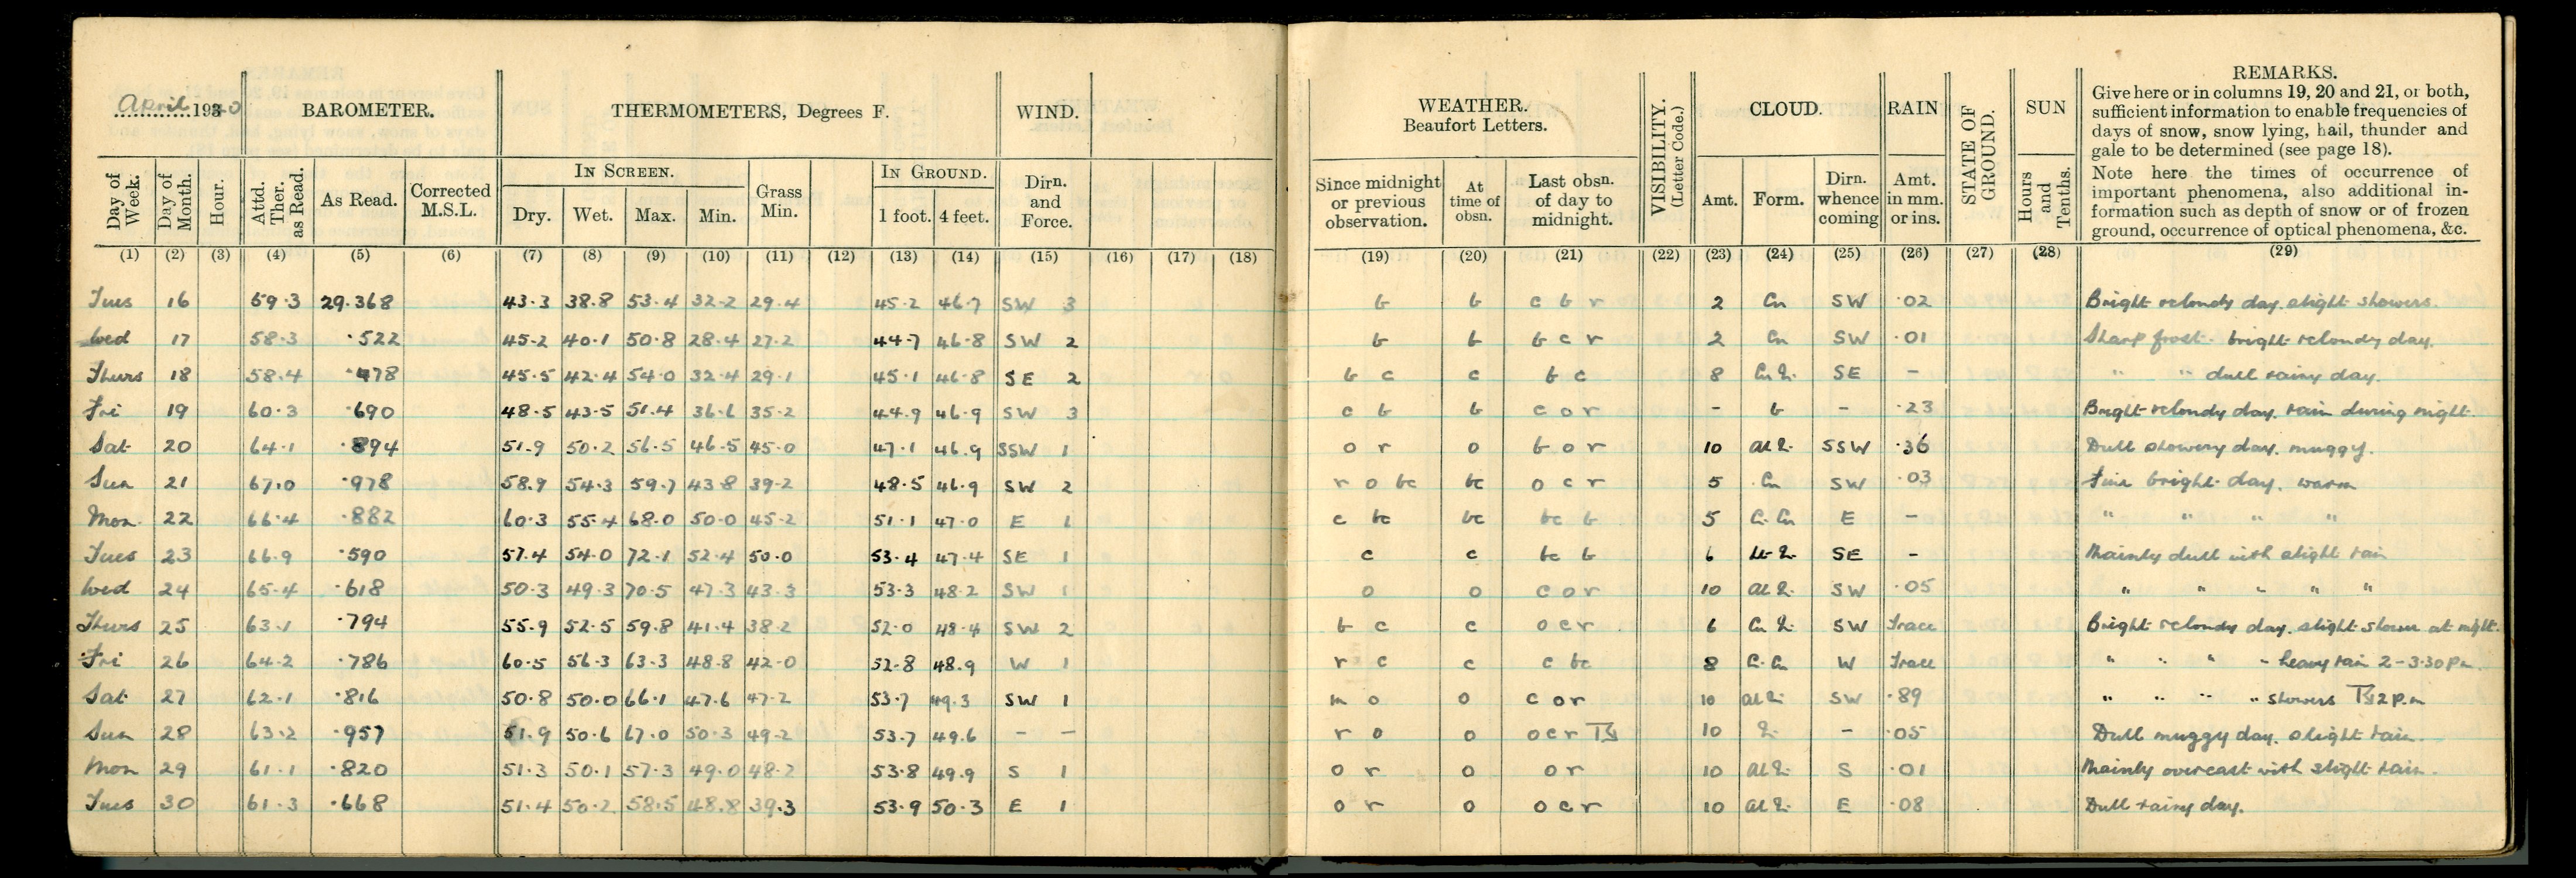 April 1940
BAROMETER.
THERMOMETERS, Degrees F.
WIND.
WEATHER.
Beaufort Letters.
VISIBILITY.
(Letter Code.)
CLOUD.
RAIN
STATE OF
GROUND.
SUN
REMARKS.
Give here or in columns 19, 20 and 21, or both,
sufficient information to enable frequencies of
days of snow, snow lying, hail, thunder and
gale to be determined (see page 18).
Note here the times of occurrence of
important phenomena, also additional in-
formation such as depth of snow or of frozen
ground, occurrence of optical phenomena, &c.
Day of
Week.
Day of
Month.
Hour.
Attd.
Ther.
as Read.
As Read.
Corrected
M.S.L.
IN SCREEN.
Dry.
Wet.
Max.
Min.
Grass
Min.
IN GROUND.
1 foot.
4 feet.
Dirn.
and
Force.
Since midnight
or previous
observation.
At
time of
obsn.
Last obsn.
of day to
midnight.
Amt.
Form.
Dirn.
whence
coming
Amt.
in mm.
or ins.
Hours
and
Tenths.
(1) (2) (3) (4) (5) (6) (7) (8) (9) (10) (11) (12) (13) (14) (15) (16) (17) (18) (19) (20) (21) (22) (23) (24) (25) (26) (27) (28) (29)
Tues 16 59.3 29.368 43.3 38.8 53.4 32.2 29.4 45.2 46.7 SW 3 b b c b r 2 Cu SW .02 Bright & cloudy day. slight showers.
Wed 17 58.3 .522 45.2 40.1 50.8 28.4 27.2 44.7 46.8 SW 2 b b b c r 2 Cu SW .01 Sharp frost. bright & cloudy day.
Thurs 18 58.4 .478 45.5 42.4 54.0 32.4 29.1 45.1 46.8 SE 2 b c c b c 8 SE - " " dull rainy day.
Fri 19 60.3 .690 48.5 43.5 51.4 36.6 35.2 44.9 46.9 SW 3 c b b c o r - b - .23 Bright & cloudy day. rain during night.
Sat 20 64.1 .894 51.9 50.2 56.5 46.5 45.0 47.1 46.9 SSW 1 o r o b o r 10 SSW .36 Dull showery day. muggy.
Sun 21 67.0 .978 58.9 54.3 59.7 43.8 39.2 48.5 46.9 SW 2 r o bc bc o c r 5 Cu SW .03 Fine bright day. warm
Mon 22 66.4 .882 60.3 55.4 68.0 50.0 45.2 51.1 47.0 E 1 c bc bc bc b 5 E - " " " "
Tues 23 66.9 .590 57.4 54.0 72.1 52.4 50.0 53.4 47.4 SE 1 c c bc b 6 SE - Mainly dull with slight rain
Wed 24 65.4 .618 50.3 49.3 70.5 47.3 43.3 53.3 48.2 SW 1 o o c o r 10 SW .05 " " " " "
Thurs 25 63.1 .794 55.9 52.5 59.8 41.4 38.2 52.0 48.4 SW 2 b c c o c r 6 SW Trace Bright & cloudy day. slight shower at night.
Fri 26 64.2 .786 60.5 56.3 63.3 48.8 42.0 52.8 48.9 W 1 r c c c bc 8 W Trace " " " " heavy rain 2-3.30 P.m.
Sat 27 62.1 .816 50.8 50.0 66.1 47.6 47.2 53.7 49.3 SW 1 m o o c o r 10 SW .89 " " " " showers 2 P.m
Sun 28 63.2 .957 51.9 50.6 67.0 50.3 49.2 53.7 49.6 - - r o o o c r 10 - .05 Dull muggy day. slight rain.
Mon 29 61.1 .820 51.3 50.1 57.3 49.0 48.2 53.8 49.9 S 1 o r o o r 10 S .01 Mainly overcast with slight rain.
Tues 30 61.3 .668 51.4 50.2 58.5 48.8 39.3 53.9 50.3 E 1 o r o o c r 10 E .08 Dull rainy day.